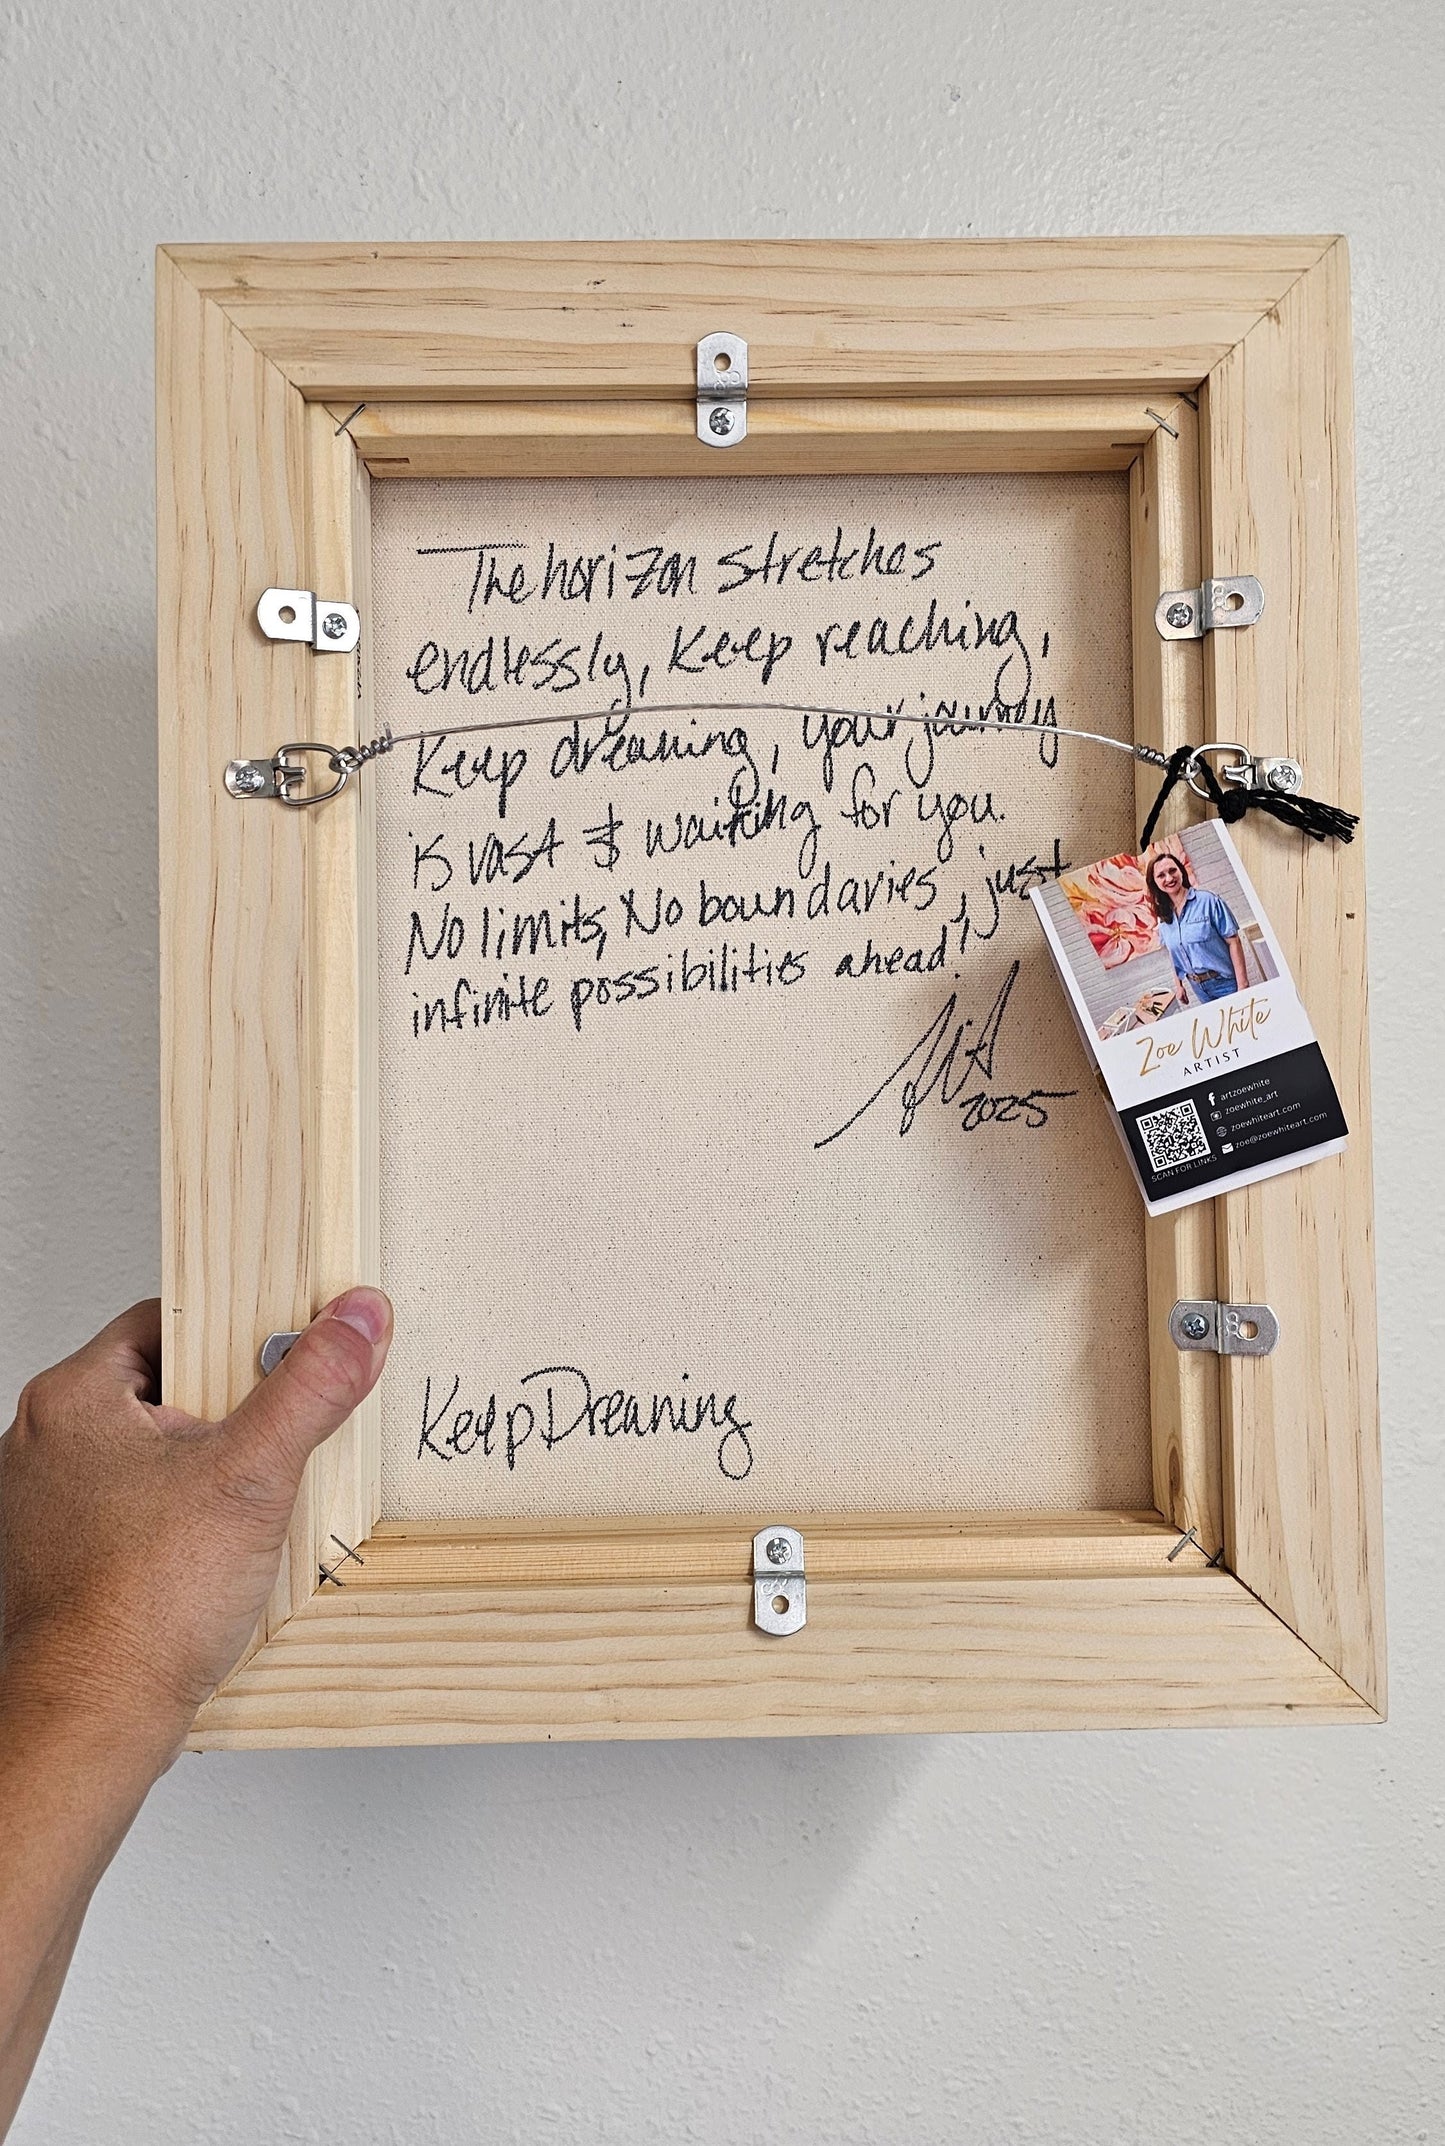 The horizon stretches
endlessly, Keep reaching,
Keep dreaming, your journey
is vast & waiting for you.
No limits, No boundaries, just
infinite possibilities ahead!
2025
Zoe White
ARTIST
artzoewhite
zoewhite_art
zoewhiteart.com
zoe@zoewhiteart.com
SCAN FOR LINKS
Keep Dreaming